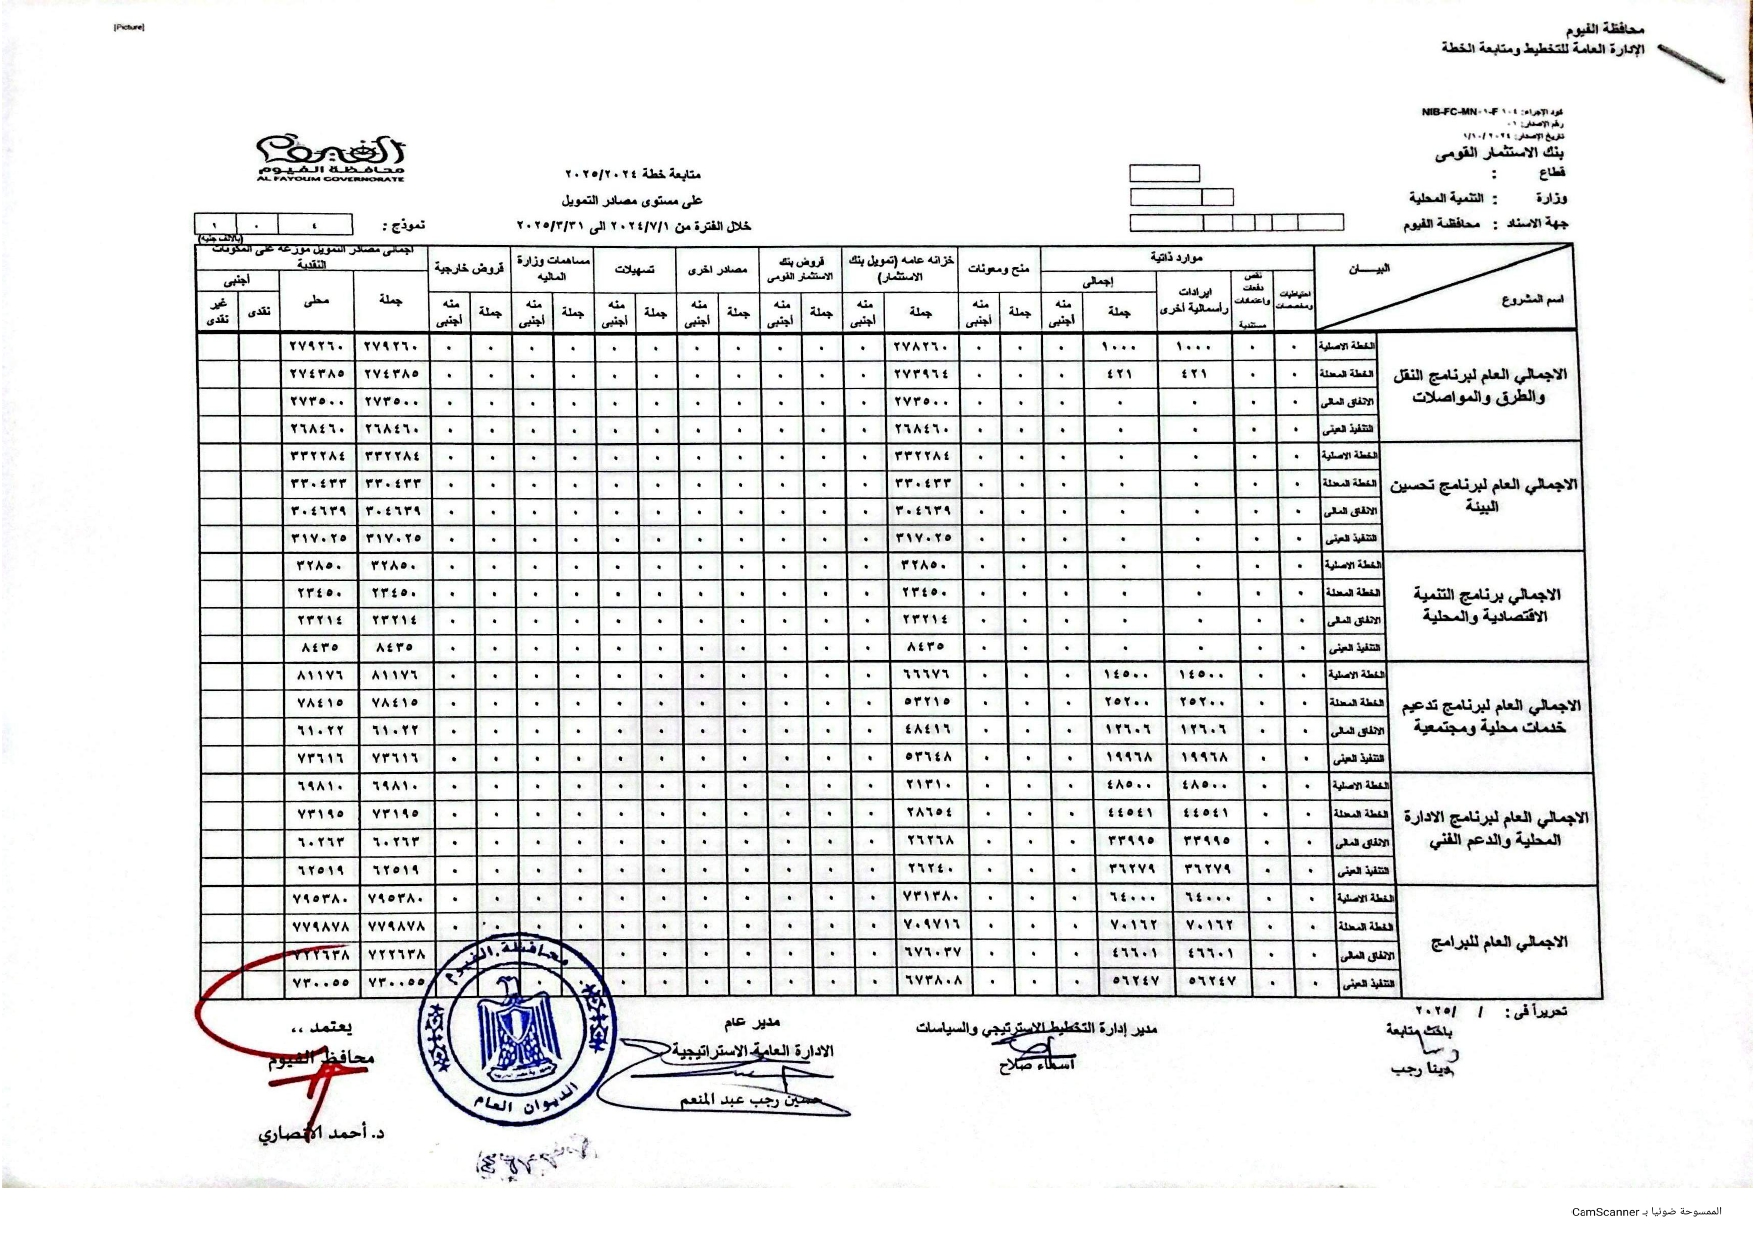 [Picture]
محافظة الفيوم
الإدارة العامة للتخطيط ومتابعة الخطة
كود الإجراء: NIB-FC-MN-٠١-F ١٠٤
رقم الإصدار: ٠١
تاريخ الإصدار: ١/١٠/٢٠٢٤
بنك الاستثمار القومى
قطاع :
وزارة : التنمية المحلية
جهة الاسناد : محافظة الفيوم
الفيوم
محافظة الفيوم
AL FAYOUM GOVERNORATE
متابعة خطة ٢٠٢٥/٢٠٢٤
على مستوى مصادر التمويل
خلال الفترة من ٢٠٢٤/٧/١ الى ٢٠٢٥/٣/٣١
نموذج : ٤ ٠ ١
(بالالف جنيه)
البيـــــان
اسم المشروع
موارد ذاتية
احتياطيات ومخصصات
نقص دفعات واعتمادات مستندية
ايرادات رأسمالية أخرى
إجمالى
جملة منه أجنبى
منح ومعونات
جملة منه أجنبى
خزانه عامه (تمويل بنك الاستثمار)
جملة منه أجنبى
قروض بنك الاستثمار القومى
جملة منه أجنبى
مصادر اخرى
جملة منه أجنبى
تسهيلات
جملة منه أجنبى
مساهمات وزارة الماليه
جملة منه أجنبى
قروض خارجية
جملة منه أجنبى
اجمالى مصادر التمويل موزعه على المكونات النقدية
جملة محلى أجنبى
نقدى غير نقدى
الاجمالي العام لبرنامج النقل والطرق والمواصلات
الخطة الاصلية ٠ ٠ ١٠٠٠ ١٠٠٠ ٠ ٠ ٠ ٢٧٨٢٦٠ ٠ ٠ ٠ ٠ ٠ ٠ ٠ ٠ ٠ ٠ ٠ ٢٧٩٢٦٠ ٢٧٩٢٦٠
الخطة المعدلة ٠ ٠ ٤٢١ ٤٢١ ٠ ٠ ٠ ٢٧٣٩٦٤ ٠ ٠ ٠ ٠ ٠ ٠ ٠ ٠ ٠ ٠ ٠ ٢٧٤٣٨٥ ٢٧٤٣٨٥
الانفاق المالى ٠ ٠ ٠ ٠ ٠ ٠ ٠ ٢٧٣٥٠٠ ٠ ٠ ٠ ٠ ٠ ٠ ٠ ٠ ٠ ٠ ٠ ٢٧٣٥٠٠ ٢٧٣٥٠٠
التنفيذ العينى ٠ ٠ ٠ ٠ ٠ ٠ ٠ ٢٦٨٤٦٠ ٠ ٠ ٠ ٠ ٠ ٠ ٠ ٠ ٠ ٠ ٠ ٢٦٨٤٦٠ ٢٦٨٤٦٠
الاجمالي العام لبرنامج تحسين البيئة
الخطة الاصلية ٠ ٠ ٠ ٠ ٠ ٠ ٠ ٣٣٢٢٨٤ ٠ ٠ ٠ ٠ ٠ ٠ ٠ ٠ ٠ ٠ ٠ ٣٣٢٢٨٤ ٣٣٢٢٨٤
الخطة المعدلة ٠ ٠ ٠ ٠ ٠ ٠ ٠ ٣٣٠٤٣٣ ٠ ٠ ٠ ٠ ٠ ٠ ٠ ٠ ٠ ٠ ٠ ٣٣٠٤٣٣ ٣٣٠٤٣٣
الانفاق المالى ٠ ٠ ٠ ٠ ٠ ٠ ٠ ٣٠٤٦٣٩ ٠ ٠ ٠ ٠ ٠ ٠ ٠ ٠ ٠ ٠ ٠ ٣٠٤٦٣٩ ٣٠٤٦٣٩
التنفيذ العينى ٠ ٠ ٠ ٠ ٠ ٠ ٠ ٣١٧٠٢٥ ٠ ٠ ٠ ٠ ٠ ٠ ٠ ٠ ٠ ٠ ٠ ٣١٧٠٢٥ ٣١٧٠٢٥
الاجمالي برنامج التنمية الاقتصادية والمحلية
الخطة الاصلية ٠ ٠ ٠ ٠ ٠ ٠ ٠ ٣٢٨٥٠ ٠ ٠ ٠ ٠ ٠ ٠ ٠ ٠ ٠ ٠ ٠ ٣٢٨٥٠ ٣٢٨٥٠
الخطة المعدلة ٠ ٠ ٠ ٠ ٠ ٠ ٠ ٢٣٤٥٠ ٠ ٠ ٠ ٠ ٠ ٠ ٠ ٠ ٠ ٠ ٠ ٢٣٤٥٠ ٢٣٤٥٠
الانفاق المالى ٠ ٠ ٠ ٠ ٠ ٠ ٠ ٢٣٢١٤ ٠ ٠ ٠ ٠ ٠ ٠ ٠ ٠ ٠ ٠ ٠ ٢٣٢١٤ ٢٣٢١٤
التنفيذ العينى ٠ ٠ ٠ ٠ ٠ ٠ ٠ ٨٤٣٥ ٠ ٠ ٠ ٠ ٠ ٠ ٠ ٠ ٠ ٠ ٠ ٨٤٣٥ ٨٤٣٥
الاجمالي العام لبرنامج تدعيم خدمات محلية ومجتمعية
الخطة الاصلية ٠ ٠ ١٤٥٠٠ ١٤٥٠٠ ٠ ٠ ٠ ٦٦٦٧٦ ٠ ٠ ٠ ٠ ٠ ٠ ٠ ٠ ٠ ٠ ٠ ٨١١٧٦ ٨١١٧٦
الخطة المعدلة ٠ ٠ ٢٥٢٠٠ ٢٥٢٠٠ ٠ ٠ ٠ ٥٣٢١٥ ٠ ٠ ٠ ٠ ٠ ٠ ٠ ٠ ٠ ٠ ٠ ٧٨٤١٥ ٧٨٤١٥
الانفاق المالى ٠ ٠ ١٢٦٠٦ ١٢٦٠٦ ٠ ٠ ٠ ٤٨٤١٦ ٠ ٠ ٠ ٠ ٠ ٠ ٠ ٠ ٠ ٠ ٠ ٦١٠٢٢ ٦١٠٢٢
التنفيذ العينى ٠ ٠ ١٩٩٦٨ ١٩٩٦٨ ٠ ٠ ٠ ٥٣٦٤٨ ٠ ٠ ٠ ٠ ٠ ٠ ٠ ٠ ٠ ٠ ٠ ٧٣٦١٦ ٧٣٦١٦
الاجمالي العام لبرنامج الادارة المحلية والدعم الفني
الخطة الاصلية ٠ ٠ ٤٨٥٠٠ ٤٨٥٠٠ ٠ ٠ ٠ ٢١٣١٠ ٠ ٠ ٠ ٠ ٠ ٠ ٠ ٠ ٠ ٠ ٠ ٦٩٨١٠ ٦٩٨١٠
الخطة المعدلة ٠ ٠ ٤٤٥٤١ ٤٤٥٤١ ٠ ٠ ٠ ٢٨٦٥٤ ٠ ٠ ٠ ٠ ٠ ٠ ٠ ٠ ٠ ٠ ٠ ٧٣١٩٥ ٧٣١٩٥
الانفاق المالى ٠ ٠ ٣٣٩٩٥ ٣٣٩٩٥ ٠ ٠ ٠ ٢٦٢٦٨ ٠ ٠ ٠ ٠ ٠ ٠ ٠ ٠ ٠ ٠ ٠ ٦٠٢٦٣ ٦٠٢٦٣
التنفيذ العينى ٠ ٠ ٣٦٢٧٩ ٣٦٢٧٩ ٠ ٠ ٠ ٢٦٢٤٠ ٠ ٠ ٠ ٠ ٠ ٠ ٠ ٠ ٠ ٠ ٠ ٦٢٥١٩ ٦٢٥١٩
الاجمالي العام للبرامج
الخطة الاصلية ٠ ٠ ٦٤٠٠٠ ٦٤٠٠٠ ٠ ٠ ٠ ٧٣١٣٨٠ ٠ ٠ ٠ ٠ ٠ ٠ ٠ ٠ ٠ ٠ ٠ ٧٩٥٣٨٠ ٧٩٥٣٨٠
الخطة المعدلة ٠ ٠ ٧٠١٦٢ ٧٠١٦٢ ٠ ٠ ٠ ٧٠٩٧١٦ ٠ ٠ ٠ ٠ ٠ ٠ ٠ ٠ ٠ ٠ ٠ ٧٧٩٨٧٨ ٧٧٩٨٧٨
الانفاق المالى ٠ ٠ ٤٦٦٠١ ٤٦٦٠١ ٠ ٠ ٠ ٦٧٦٠٣٧ ٠ ٠ ٠ ٠ ٠ ٠ ٠ ٧٢٢٦٣٨ ٧٢٢٦٣٨
التنفيذ العينى ٠ ٠ ٥٦٢٤٧ ٥٦٢٤٧ ٠ ٠ ٠ ٦٧٣٨٠٨ ٠ ٠ ٠ ٠ ٠ ٠ ٠ ٠ ٧٣٠٠٥٥ ٧٣٠٠٥٥
تحريراً فى : / /٢٠٢٥
باحث متابعة
دينا رجب
مدير إدارة التخطيط الاسترتيجي والسياسات
أسماء صلاح
مدير عام
الادارة العامة الاستراتيجية
حسين رجب عبد المنعم
محافظة الفيوم
الديوان العام
يعتمد ،،
محافظ الفيوم
د. أحمد الأنصاري
الممسوحة ضوئيا بـ CamScanner